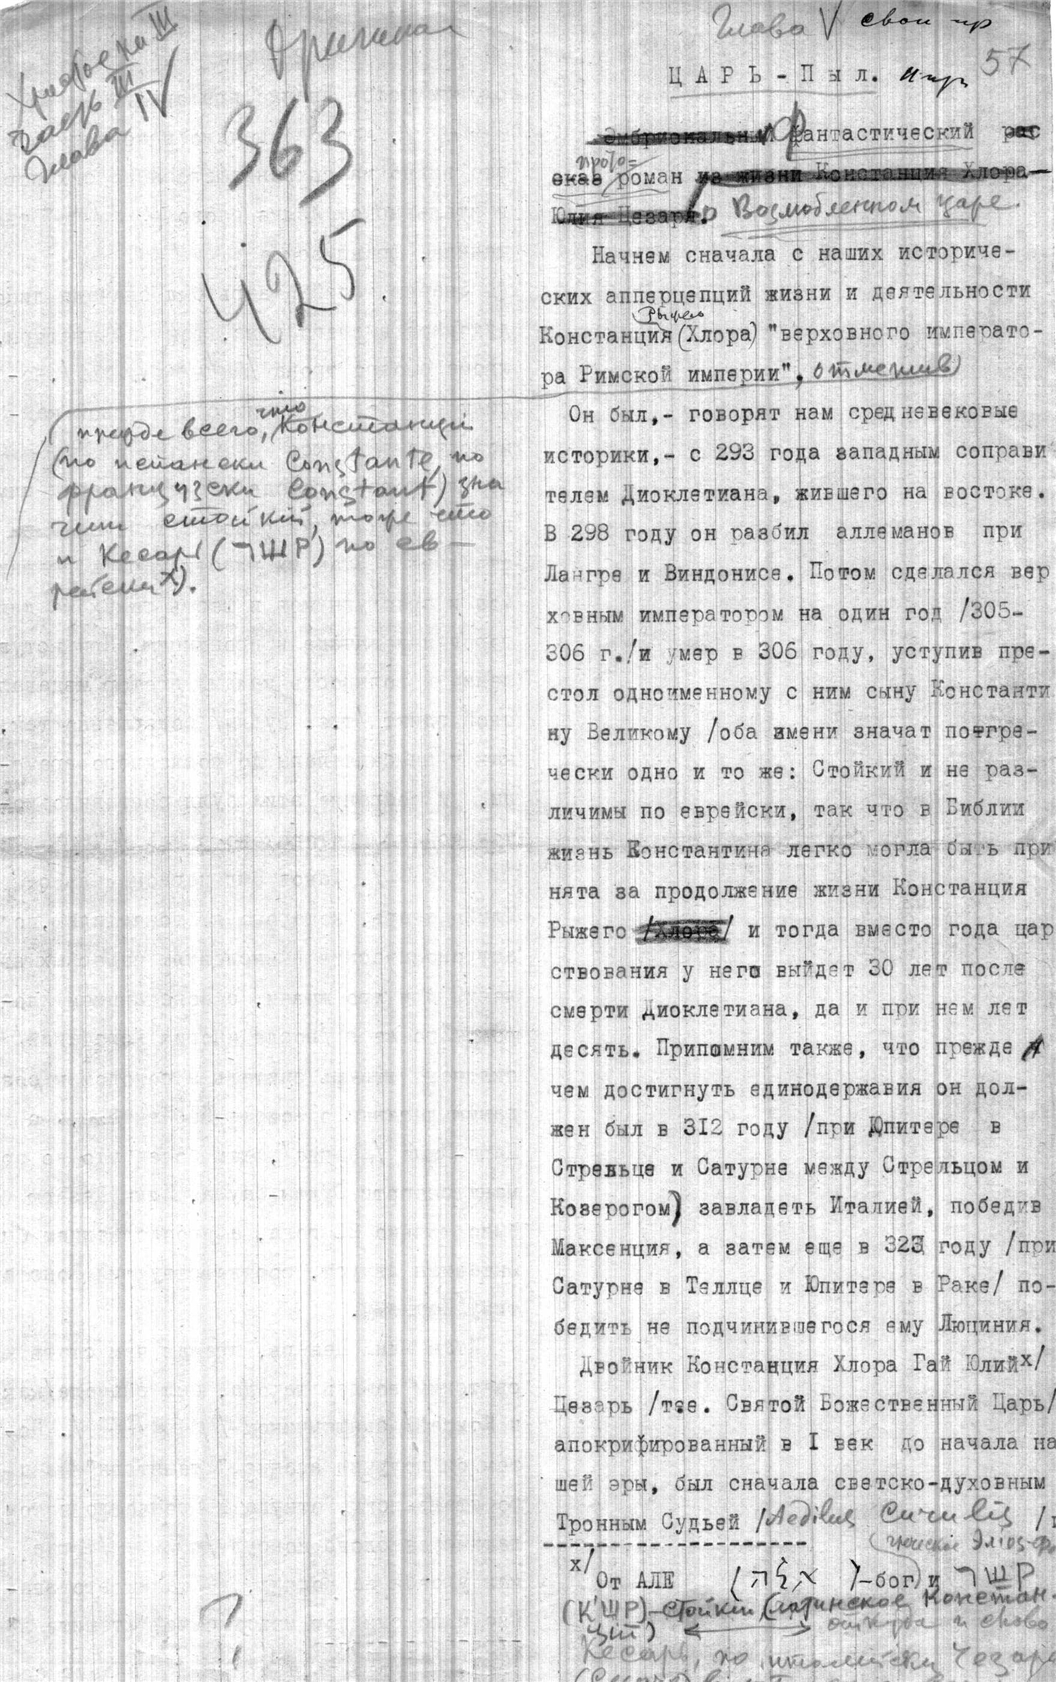 Глава V свои
57
часть III
Глава IV
363
425
ЦАРЬ-Пыл.
Эмбриональный фантастический рас
сказ роман из жизни Констанция Хлора
Юлия Цезаря. о Возлюбленном царе.
Начнем сначала с наших историче-
ских апперцепций жизни и деятельности
Рыжего
Констанция (Хлора) "верховного императо-
ра Римской империи", отметив
прежде всего, что Констанций
(по испански Constante, по
французски Constant) зна
чит стойкий, тоже что
и Кесарь (רשר) по ев-
рейски х).
Он был,- говорят нам средневековые
историки,- с 293 года западным соправи
телем Диоклетиана, жившего на востоке.
В 298 году он разбил аллеманов при
Лангре и Виндонисе. Потом сделался вер
ховным императором на один год /305-
306 г./и умер в 306 году, уступив пре-
стол одноименному с ним сыну Константи
ну Великому /оба имени значат по-гре-
чески одно и то же: Стойкий и не раз-
личимы по еврейски, так что в Библии
жизнь Константина легко могла быть при
нята за продолжение жизни Констанция
Рыжего /Хлора/ и тогда вместо года цар
ствования у него выйдет 30 лет после
смерти Диоклетиана, да и при нем лет
десять. Припомним также, что прежде
чем достигнуть единодержавия он дол-
жен был в 3I2 году /при Юпитере в
Стрельце и Сатурне между Стрельцом и
Козерогом) завладеть Италией, победив
Максенция, а затем еще в 323 году /при
Сатурне в Теллце и Юпитере в Раке/ по-
бедить не подчинившегося ему Люциния.
Двойник Констанция Хлора Гай Юлийх/
Цезарь /т.е. Святой Божественный Царь/
апокрифированный в I век до начала на
шей эры, был сначала светско-духовным
Тронным Судьей /Aedilus Curulis /
х/
От АЛЕ (אלה)-бог) и
-стойкий, (латинское Констан-
ций) откуда и слово
Кесарь, по итальянски Чезаре